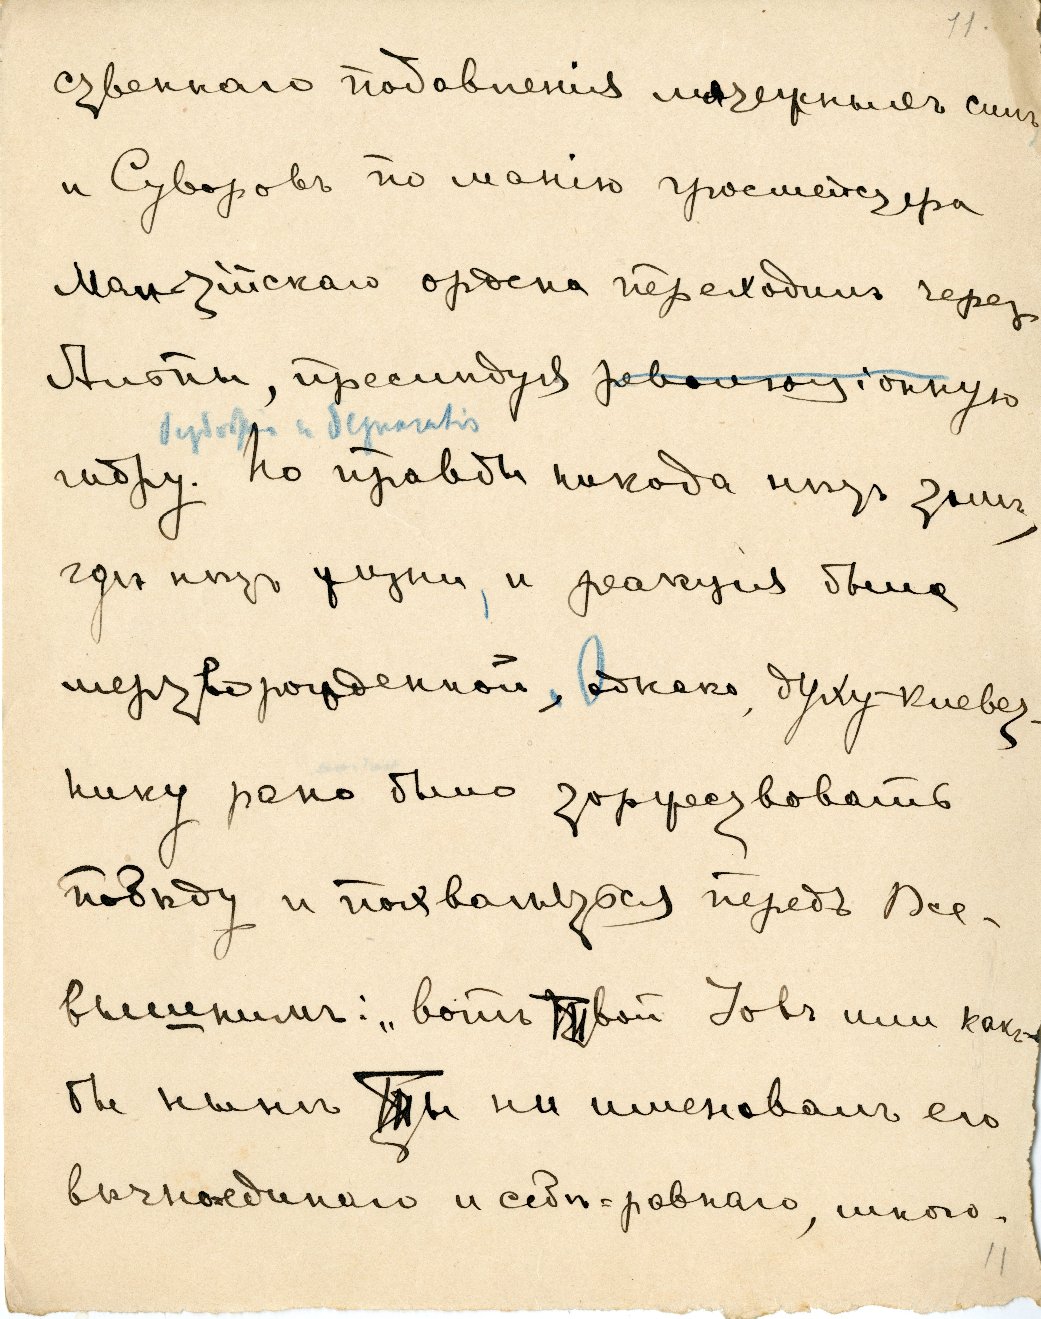 11.
ственнаго подавленія мятежныхъ силъ
и Суворовъ по манію гросмейстера
Мальтійскаго ордена переходилъ черезъ
Альпы, преслѣдуя революціонную
гидру. Но правды никогда нѣтъ тамъ,
гдѣ нѣтъ жизни, и реакція была
мертворожденной, однако, духу-клевет-
нику рано было торжествовать
побѣду и похваляться передъ Все-
вышнимъ: „вотъ Твой Іовъ или какъ-
бы нынѣ Ты ни именовалъ его
вѣчноединаго и себѣ-равнаго, много-
11